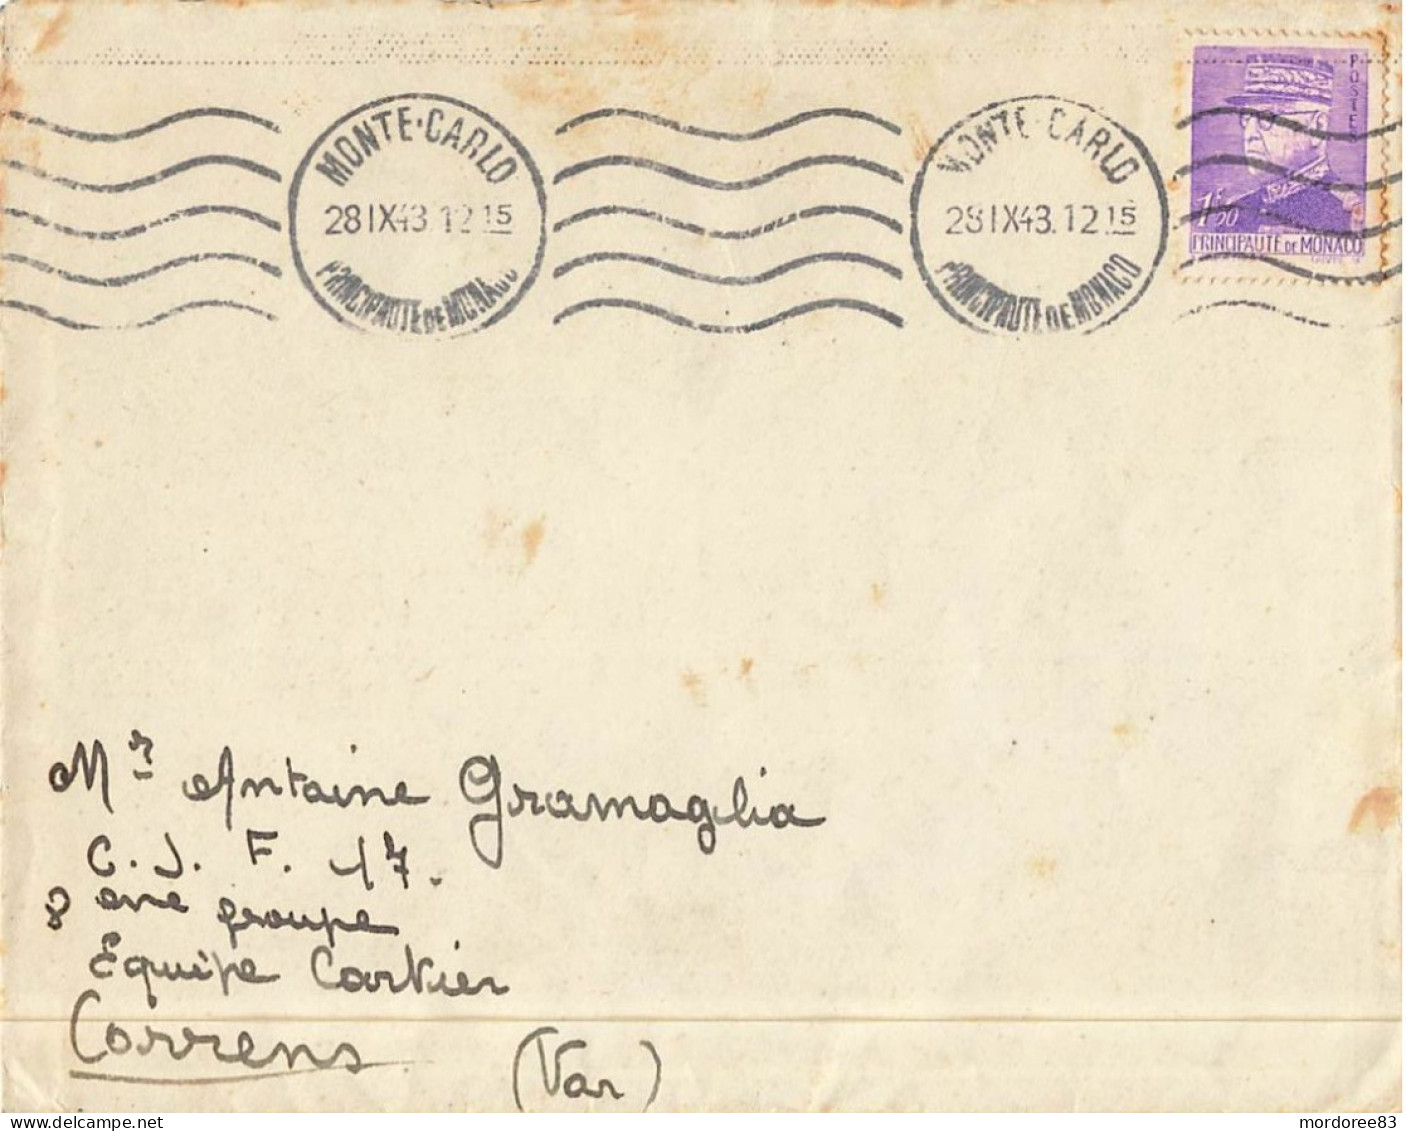 MONTE-CARLO
28 IX 43. 12 15
PRINCIPAUTE DE MONACO
MONTE-CARLO
28 IX 43. 12 15
PRINCIPAUTE DE MONACO
POSTES
1f50
PRINCIPAUTÉ DE MONACO
Mr Antoine Gramaglia
C. J. F. 17.
8 ème groupe
Equipe Cartier
Correns (Var)
mordoree83